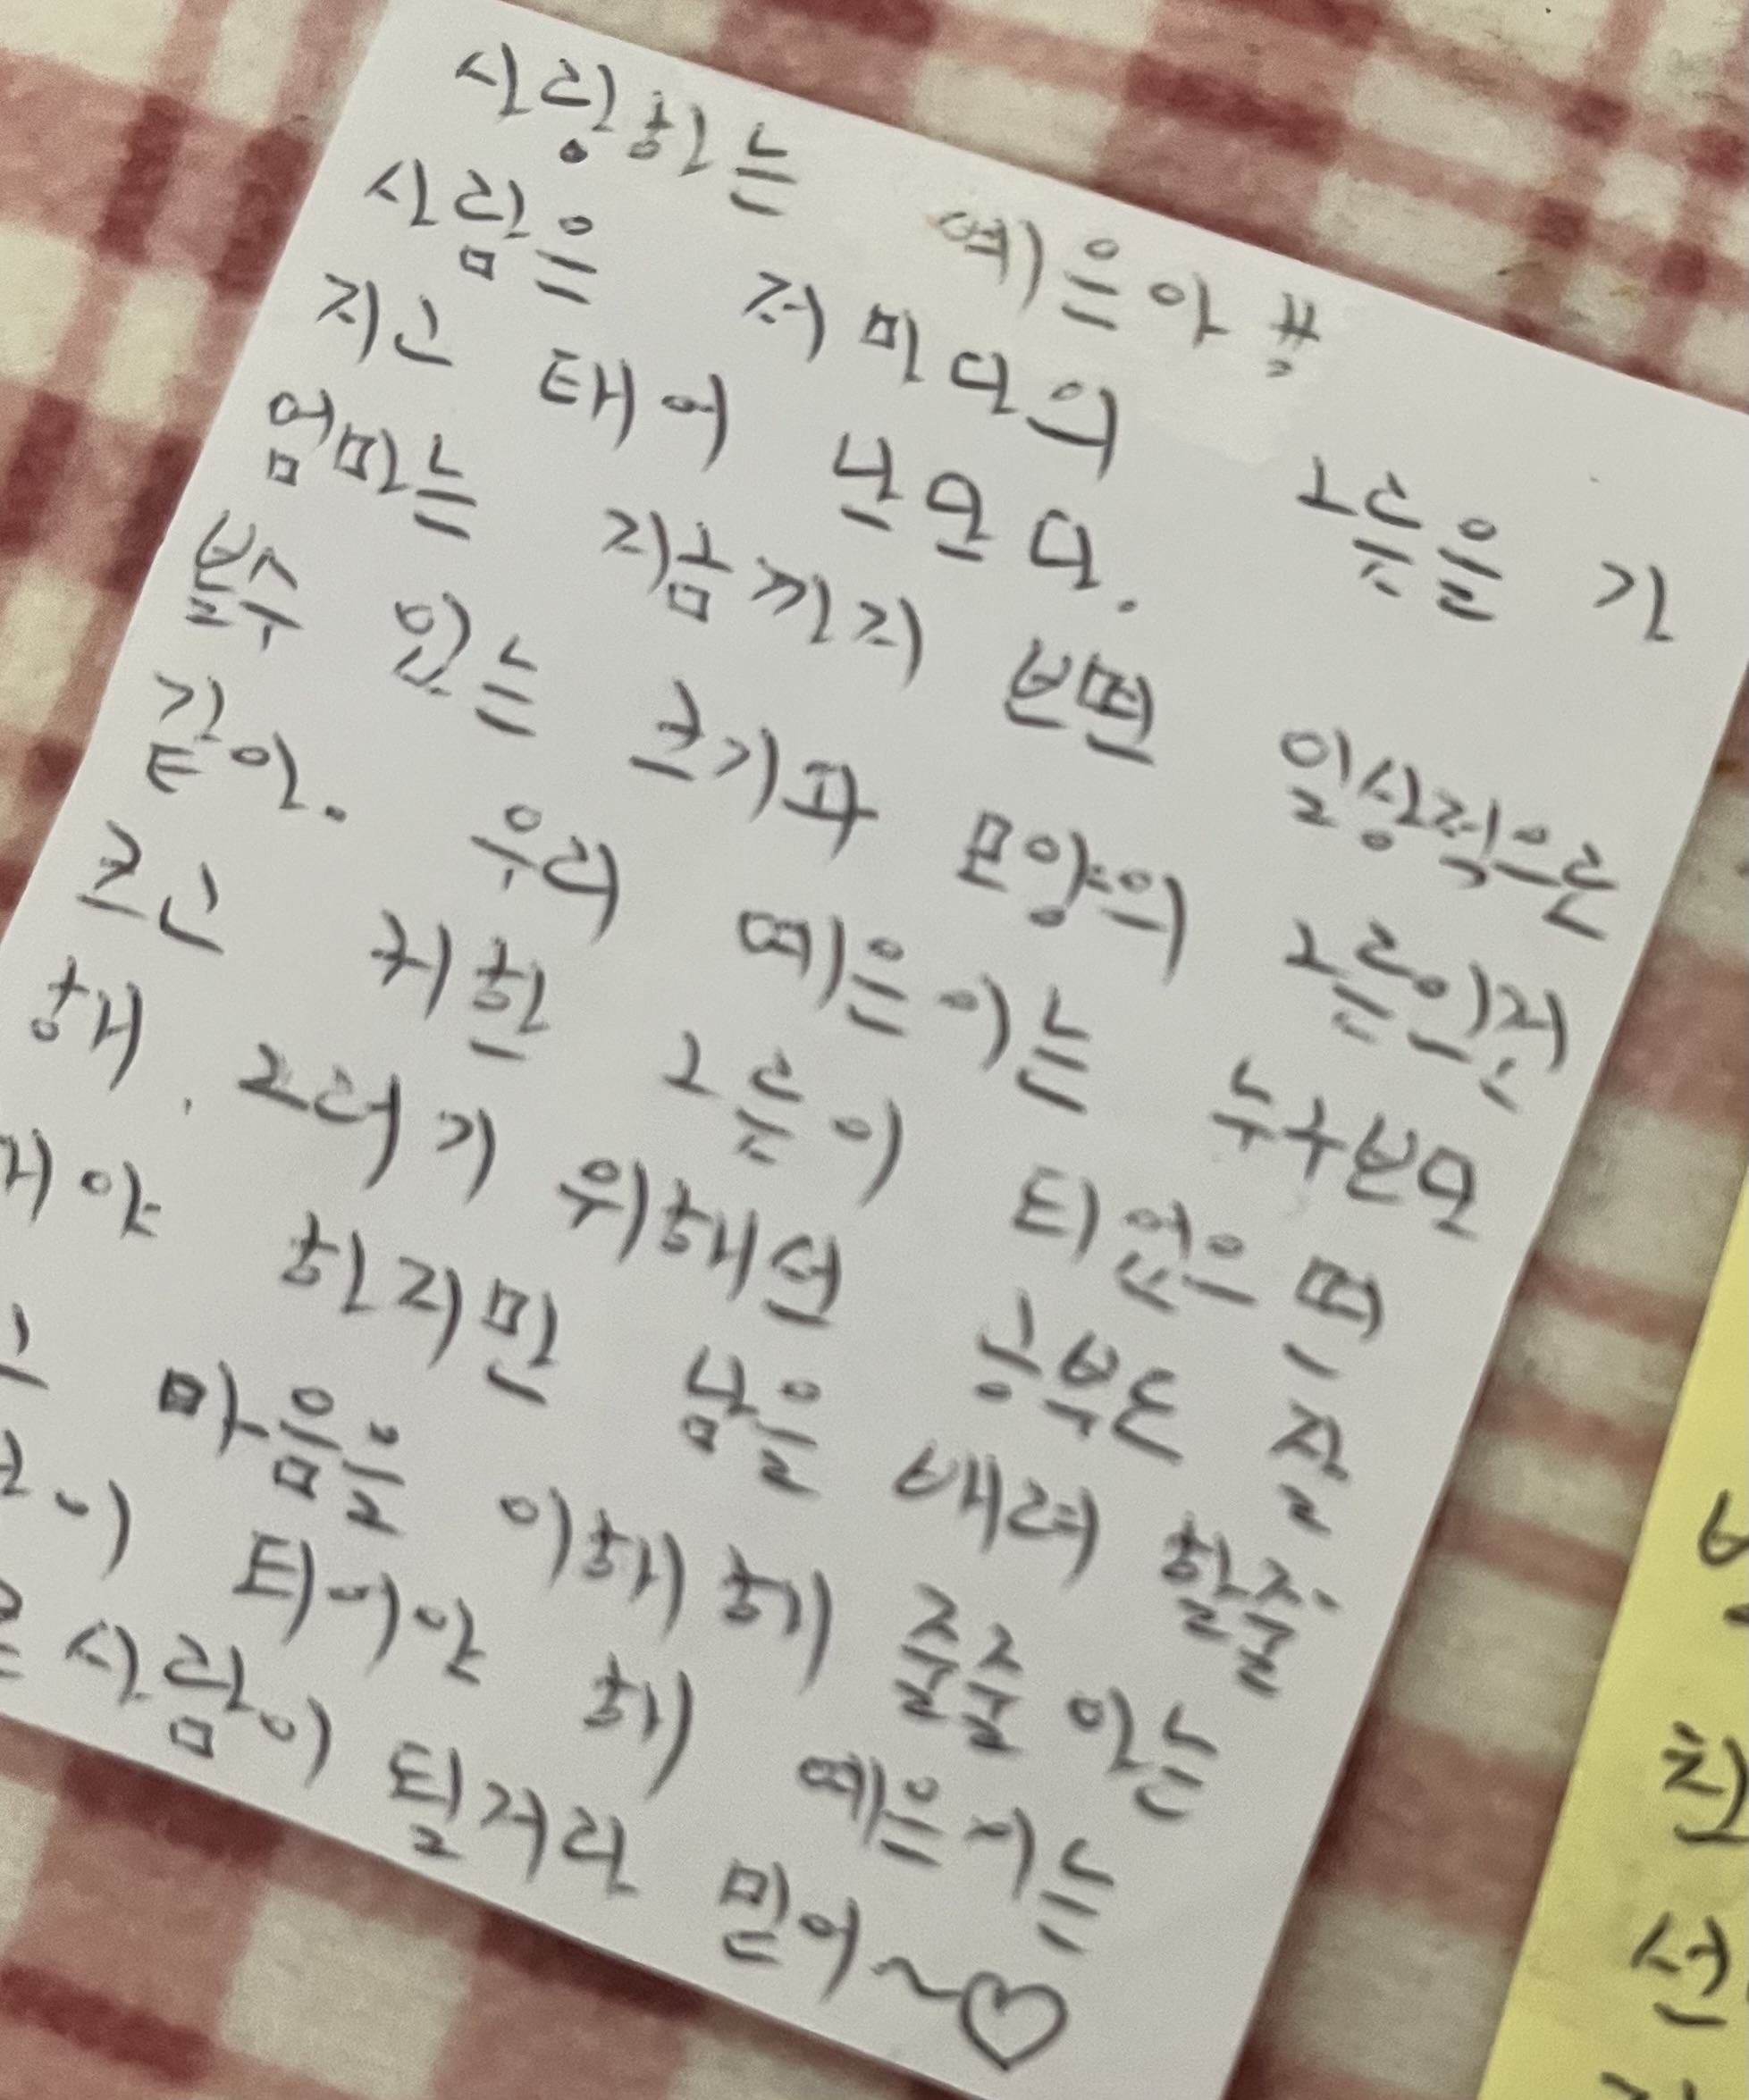 사랑하는 예은아 !!
사람은 저마다의 그릇을 가
지고 태어 난단다.
엄마는 지금까지 보면 일상적으로
볼수 있는 크기와 모양의 그릇인것
같아. 우리 예은이는 누구보다
크고 귀한 그릇이 되었으면
해. 그러기 위해선 공부도 잘
해야 하지만 남을 배려 할줄
마음을 이해해 줄줄 아는
이 되어야 해 예은이는
사람이 될거라 믿어~♡